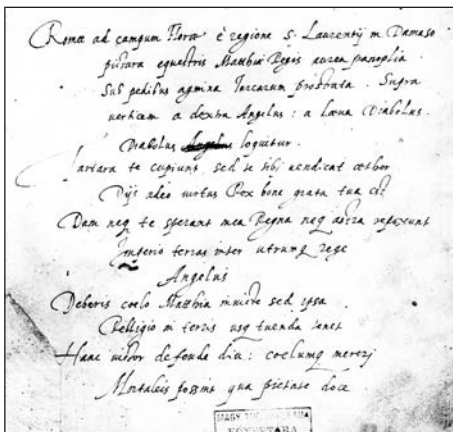 Romae ad campum Florae è regione S. Laurentij in Damaso
pictura equestris Matthiae Regis aurea panoplia.
Sub pedibus agmina Turcarum prostrata. Supra
verticem a dextra Angelus: a laeva Diabolus.
Diabolus Angelus loquitur.
Tartara te cupiunt, sed te sibi vendicat aether
Dijs adeo virtus Rex bone grata tua est
Dum neq te sperant mea Regna neq astra
Imperio terras inter utrumq rege
Angelus
Deberis coelo Matthia invicte sed ipsa
Relligio in terris usq tuenda tenet
Hanc victor defende diu: coelumq mereri
Mortaleis possint qua pietate doce